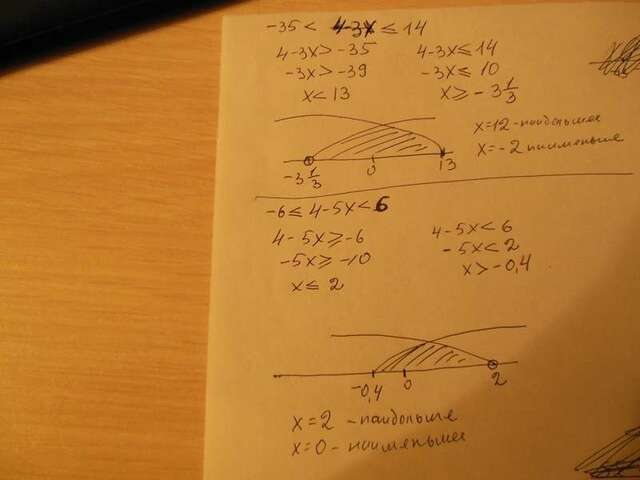 -35 < 4-3x ≤ 14
4-3x > -35 4-3x ≤ 14
-3x > -39 -3x ≤ 10
x < 13 x ≥ -3 1/3
x=12 - наибольшее
x=-2 наименьше
-3 1/3 0 13
-6 ≤ 4-5x < 6
4-5x ≥ -6 4-5x < 6
-5x ≥ -10 -5x < 2
x ≤ 2 x > -0,4
-0,4 0 2
x=2 - наибольше
x=0 - наименьшее